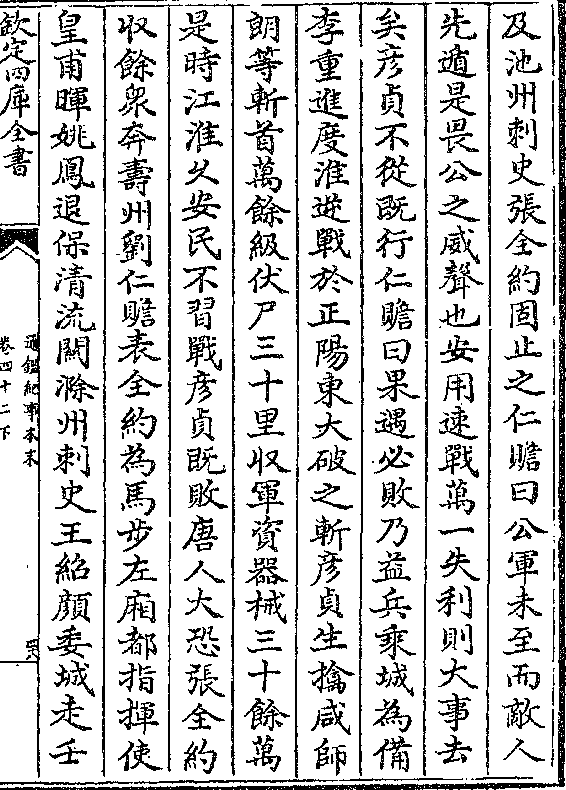 及池州刺史張全約固止之仁贍曰公軍未至而敵人
先遁是畏公之威聲也安用速戰萬一失利則大事去
矣彦貞不從既行仁贍曰果遇必敗乃益兵乘城為備
李重進度淮逆戰於正陽東大破之斬彦貞生擒咸師
朗等斬首萬餘級伏尸三十里収軍資器械三十餘萬
是時江淮乆安民不習戰彦貞既敗唐人大恐張全約
収餘衆奔壽州劉仁贍表全約為馬步左廂都指揮使
皇甫暉姚鳳退保清流關滁州刺史王紹顔委城走壬
欽定四庫全書
通鑑紀事本末
卷四十二下